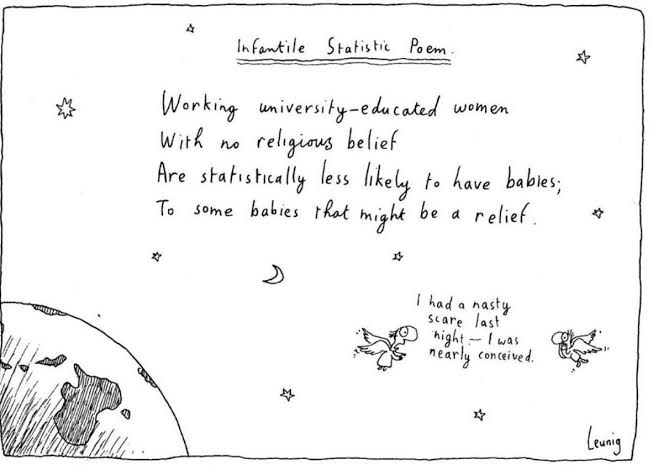 Infantile Statistic Poem.
Working university-educated women
With no religious belief
Are statistically less likely to have babies;
To some babies that might be a relief.
I had a nasty
scare last
night — I was
nearly conceived.
Leunig